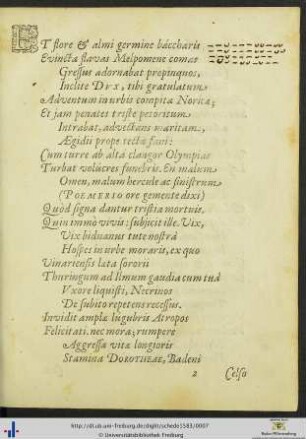 ET flore & almi germine báccharis
Evincta flavas Melpomene comas
Gressus adornabat propinquos,
Inclite DUX, tibi gratulatum
Adventum in urbis compita Noricæ;
Et jam penates triste pecoritum
Intrabat, advectans maritam,
Ægidii prope tecta fani:
Cùm turre ab alta clangor Olympias
Turbat volúcres funebris. En malum
Omen, malum hercule ac sinistrum
(POEMERIO ore gemente dixi)
Quòd signa dantur tristia mortuis.
Quin immò vivis: subjicit ille. Vix,
Vix biduanus tute nostrâ
Hospes in urbe moraris, ex quo
Vinariensis læta sororii
Thuringum ad Ilmum gaudia cum tuâ
Uxore liquisti, Necrinos
De subito repetens recessus.
Invidit amplæ lugubris Atropos
Felicitati. nec mora; rumpere
Aggressa vitæ longioris
Stamina DOROTHEAE, Badeni
2 Celso
http://dl.ub.uni-freiburg.de/diglit/schede1583/0007
© Universitätsbibliothek Freiburg
Baden-Württemberg